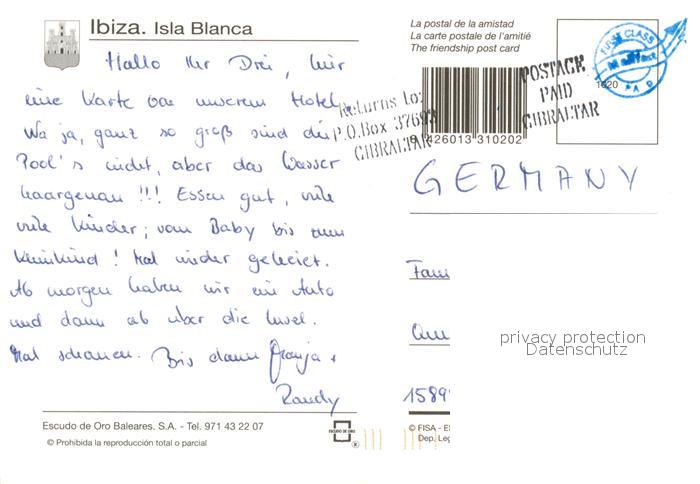 Ibiza. Isla Blanca
Hallo Ihr Drei, hier
eine Karte von unserem Hotel.
Na ja, ganz so groß sind die
Pool's nicht, aber das Wasser
haargenau!!! Essen gut, viele
viele Kinder; vom Baby bis zum
Kleinkind! Mal wieder geheiet.
Ab morgen haben wir ein Auto
und dann ab über die Insel.
Mal schauen. Bis dann +
Randy
Escudo de Oro Baleares. S.A. - Tel. 971 43 22 07
© Prohibida la reproducción total o parcial
ESCUDO DE ORO
®
La postal de la amistad
La carte postale de l'amitié
The friendship post card
Returns to:
P.O.Box
GIBRALTAR
8 426013 310202
POSTAGE
PAID
GIBRALTAR
FIRST CLASS
PAID
GERMANY
Fam
1589
privacy protection
Datenschutz
© FISA - ES
Dep. Leg